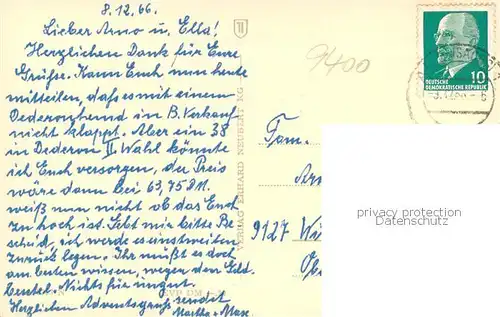 8.12.66.
Lieber Arno u. Ella!
Herzlichen Dank für Eure
Grüße. Kann Euch nun heute
mitteilen, daß es mit einem
Dederonhemd in B. Verkauf
nicht klappt. Aber ein 38
in Dederon II Wahl könnte
ich Euch versorgen, der Preis
wäre dann bei 63,75 DM.
weiß nun nicht ob das Euch
zu hoch ist. Gebt mir bitte Be
scheid, ich werde es einstweilen
zurück legen. Ihr müßt es doch
am besten wissen, wegen dem Geld
beutel. Nichts für ungut.
Herzlichen Adventsgruß sendet
Martha + Max.
VERLAG ERHARD NEUBERT KG
EVP DM
9400
DEUTSCHE
DEMOKRATISCHE REPUBLIK
10
Fam.
9127
privacy protection
Datenschutz